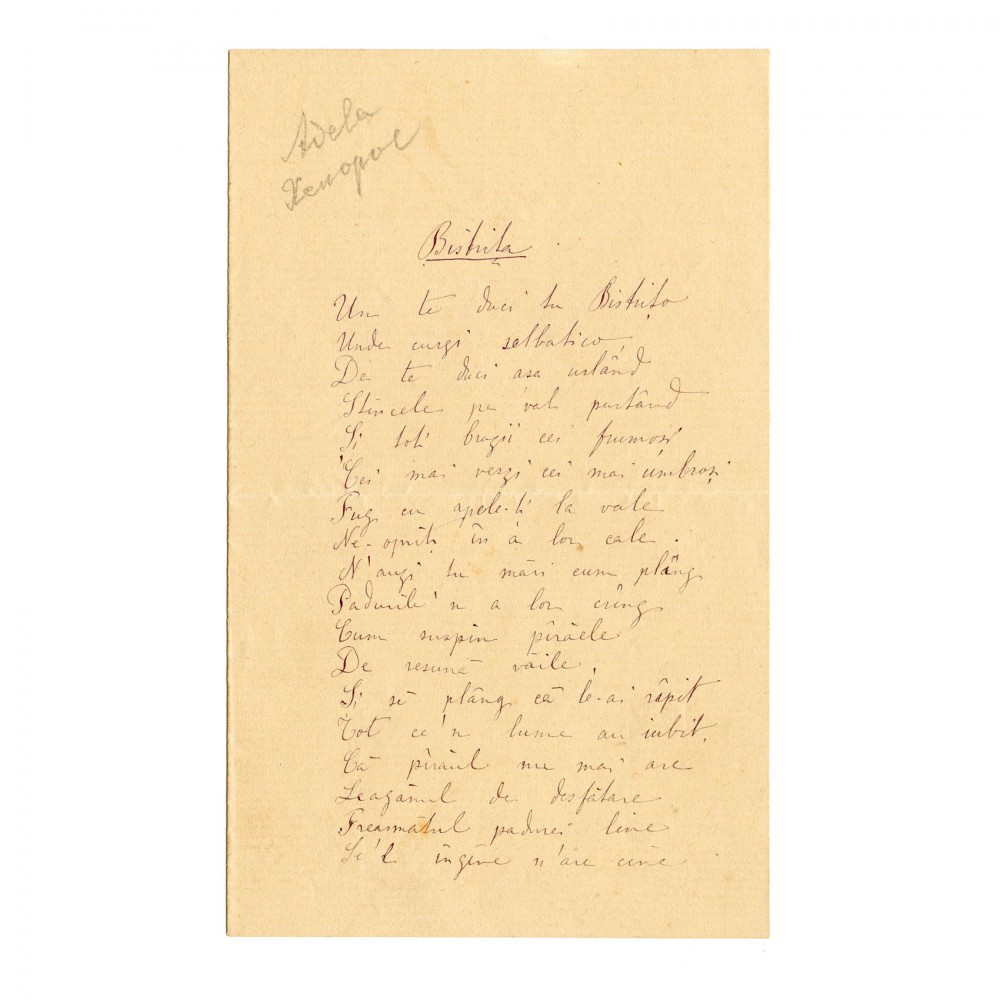 Adela
Xenopol
Bistrița
Un te duci tu Bistrițo
Unde curgi selbatico,
De te duci asa urlând
Stîncele pe val purtând
Si toti bragii cei frumosi
Cei mai verzi cei mai umbroși
Fug cu apele-ti la vale
Ne-opriți în a lor cale.
N'auzi tu mări cum plâng
Padurile'n a lor crîng
Cum suspin pîrăele
De resună văile,
Si sĕ plâng că le-ai râpit
Tot ce'n lume au iubit.
Că pîrăul nu mai are
Leagănul de desfătare
Freamătul padurei line
Se'l îngîne n'are cine